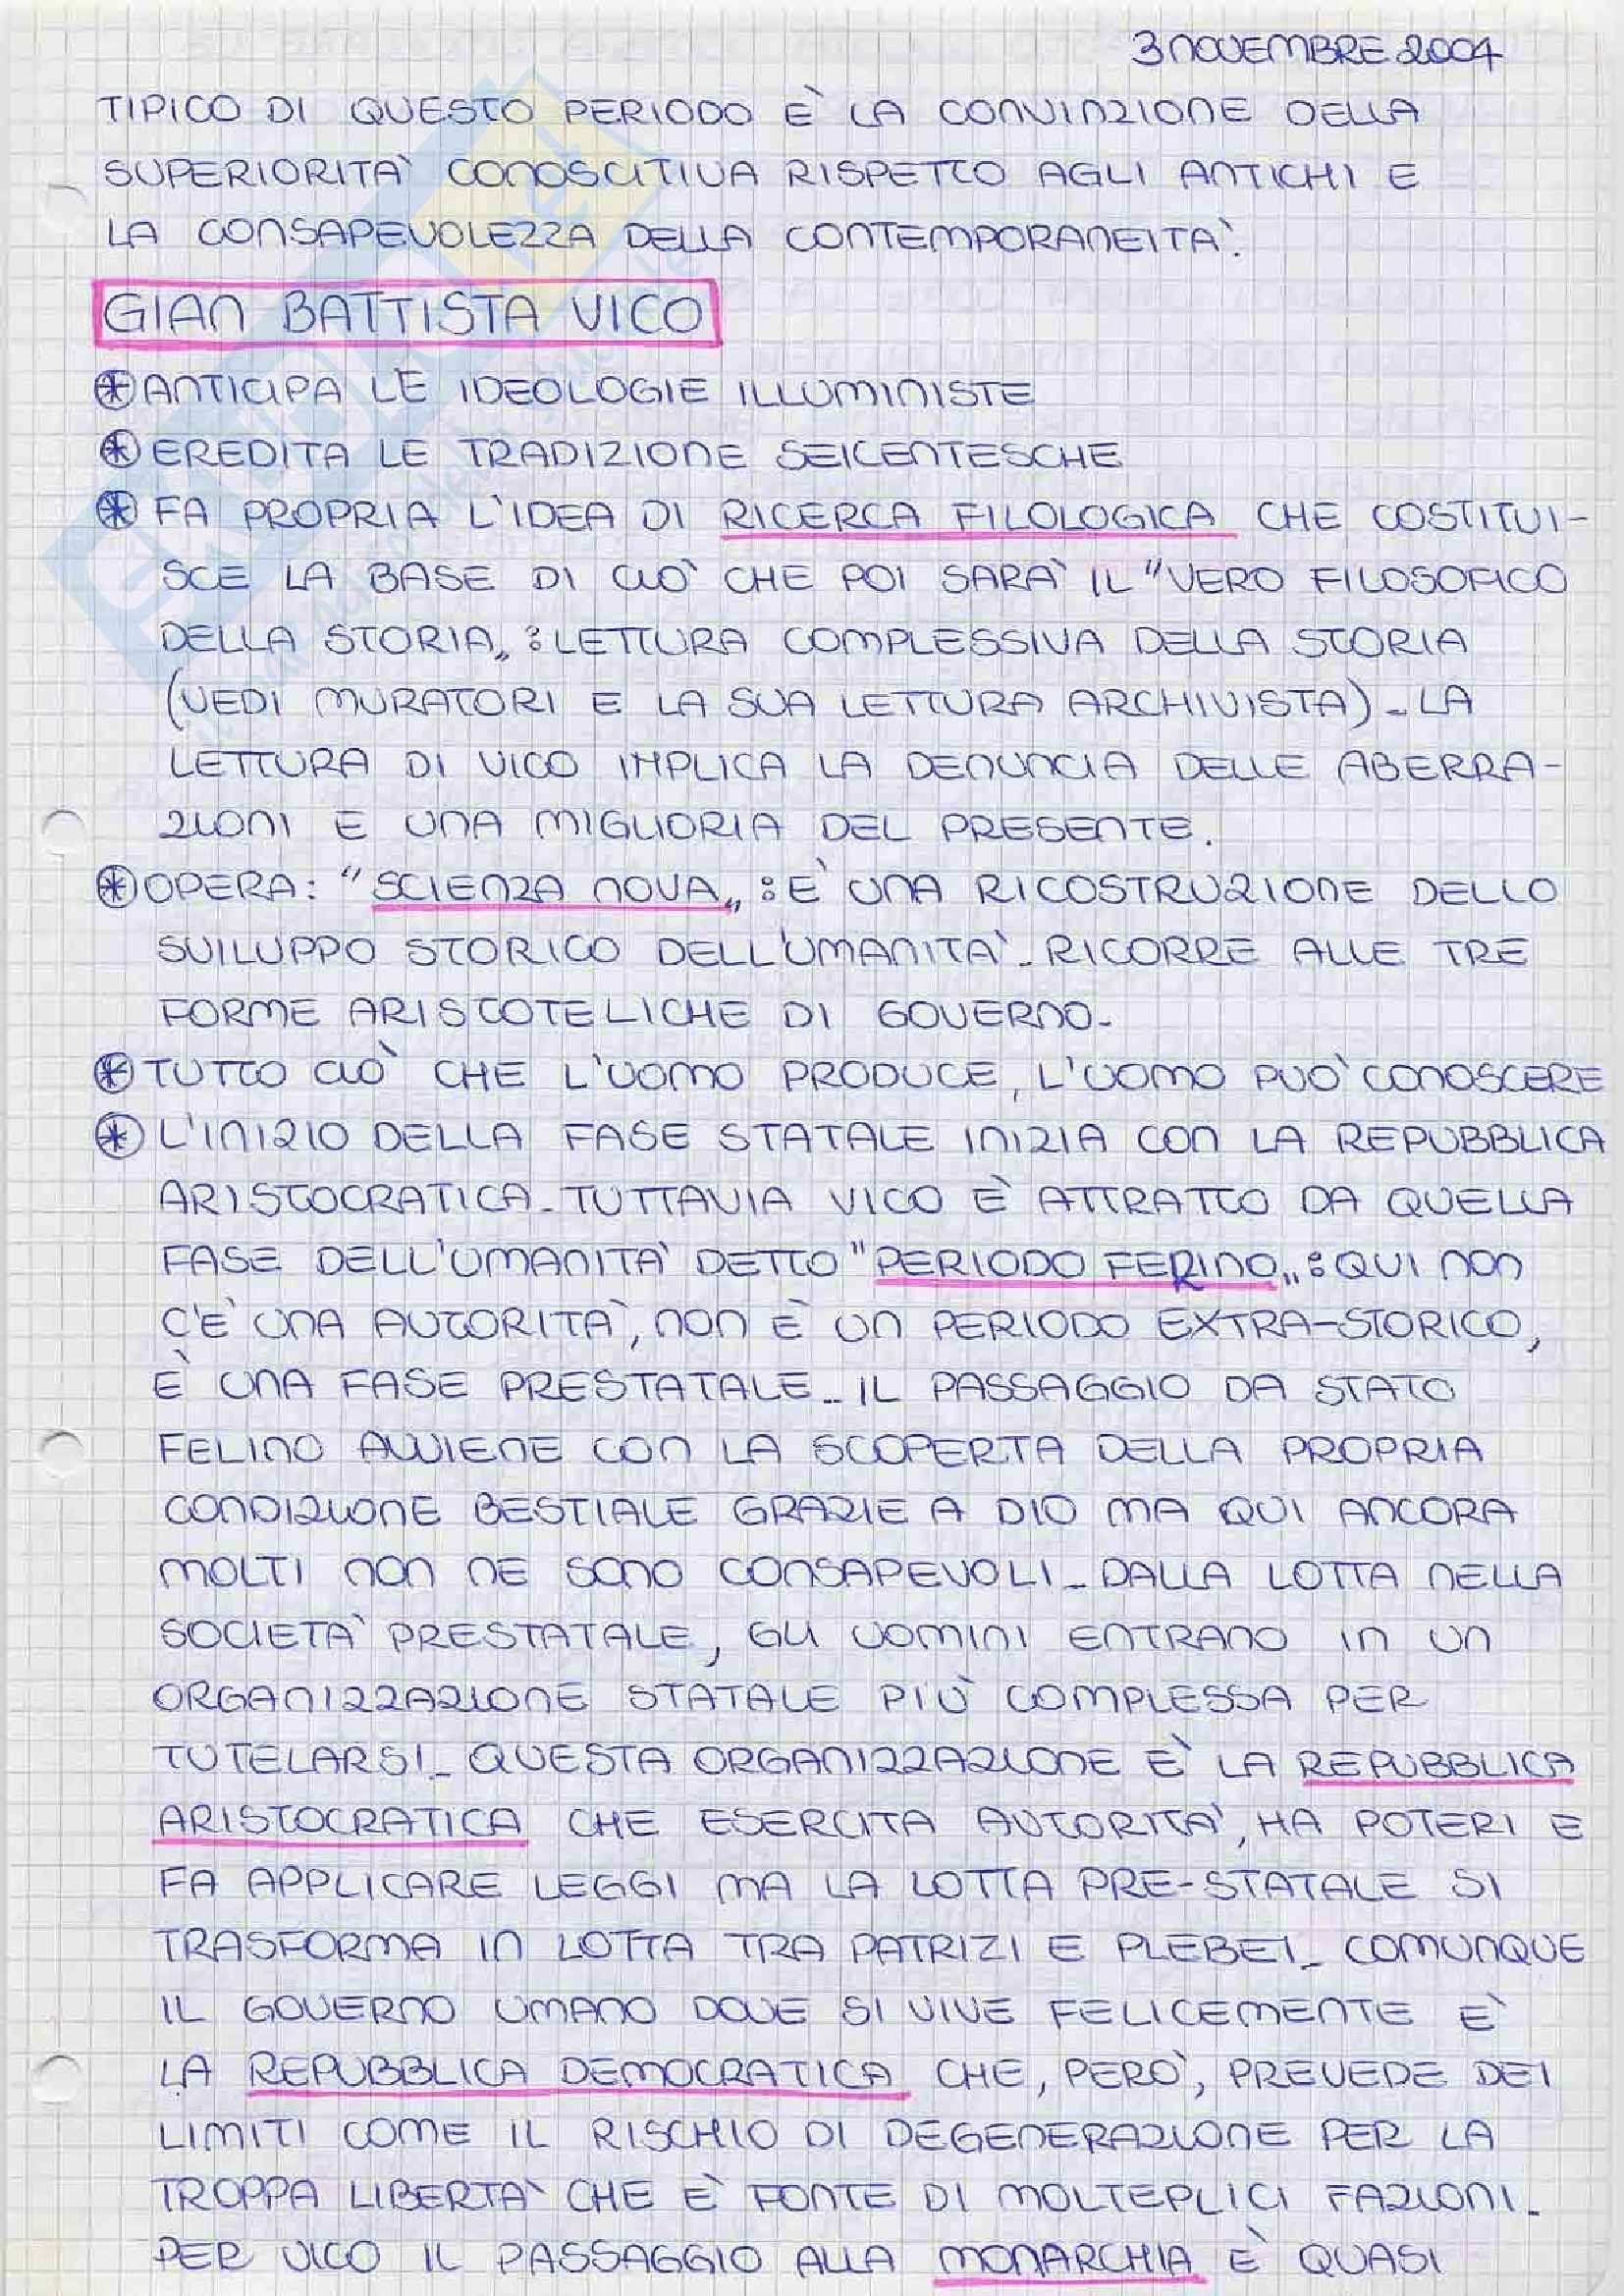 3 NOVEMBRE 2004
TIPICO DI QUESTO PERIODO È LA CONVINZIONE DELLA
SUPERIORITA' CONOSCITIVA RISPETTO AGLI ANTICHI E
LA CONSAPEVOLEZZA DELLA CONTEMPORANEITA'.
GIAN BATTISTA VICO
* ANTICIPA LE IDEOLOGIE ILLUMINISTE
* EREDITA LE TRADIZIONE SEICENTESCHE
* FA PROPRIA L'IDEA DI RICERCA FILOLOGICA CHE COSTITUI-
SCE LA BASE DI CIO' CHE POI SARA' IL "VERO FILOSOFICO
DELLA STORIA„: LETTURA COMPLESSIVA DELLA STORIA
(VEDI MURATORI E LA SUA LETTURA ARCHIVISTA)_ LA
LETTURA DI VICO IMPLICA LA DENUNCIA DELLE ABERRA-
ZIONI E UNA MIGLIORIA DEL PRESENTE.
* OPERA: "SCIENZA NOVA„: È UNA RICOSTRUZIONE DELLO
SVILUPPO STORICO DELL'UMANITA'_ RICORRE ALLE TRE
FORME ARISTOTELICHE DI GOVERNO_
* TUTTO CIÒ CHE L'UOMO PRODUCE, L'UOMO PUO' CONOSCERE
* L'INIZIO DELLA FASE STATALE INIZIA CON LA REPUBBLICA
ARISTOCRATICA_ TUTTAVIA VICO È ATTRATTO DA QUELLA
FASE DELL'UMANITA' DETTO "PERIODO FERINO„: QUI NON
C'E' UNA AUTORITA', NON È UN PERIODO EXTRA-STORICO,
È UNA FASE PRESTATALE_ IL PASSAGGIO DA STATO
FELINO AVVIENE CON LA SCOPERTA DELLA PROPRIA
CONDIZIONE BESTIALE GRAZIE A DIO MA QUI ANCORA
MOLTI NON NE SONO CONSAPEVOLI_ DALLA LOTTA NELLA
SOCIETA' PRESTATALE, GLI UOMINI ENTRANO IN UN
ORGANIZZAZIONE STATALE PIU' COMPLESSA PER
TUTELARSI_ QUESTA ORGANIZZAZIONE E' LA REPUBBLICA
ARISTOCRATICA CHE ESERCITA AUTORITA', HA POTERI E
FA APPLICARE LEGGI MA LA LOTTA PRE-STATALE SI
TRASFORMA IN LOTTA TRA PATRIZI E PLEBEI_ COMUNQUE
IL GOVERNO UMANO DOVE SI VIVE FELICEMENTE E'
LA REPUBBLICA DEMOCRATICA CHE, PERO', PREVEDE DEI
LIMITI COME IL RISCHIO DI DEGENERAZIONE PER LA
TROPPA LIBERTA' CHE E' FONTE DI MOLTEPLICI FAZIONI_
PER VICO IL PASSAGGIO ALLA MONARCHIA È QUASI